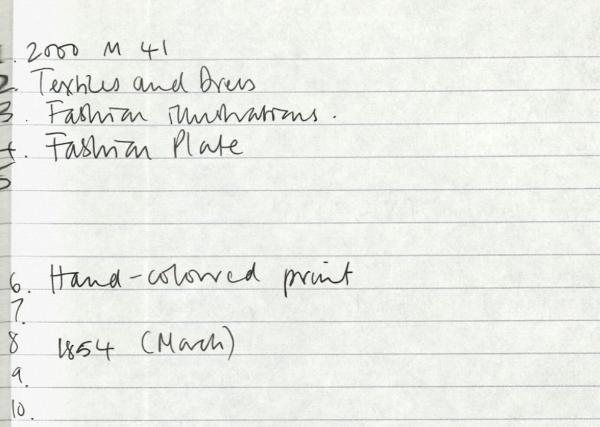 1. 2000 M 41
2. Textiles and Dress
3. Fashion illustrations.
4. Fashion Plate
5
6. Hand-coloured print
7.
8 1854 (March)
9.
10.